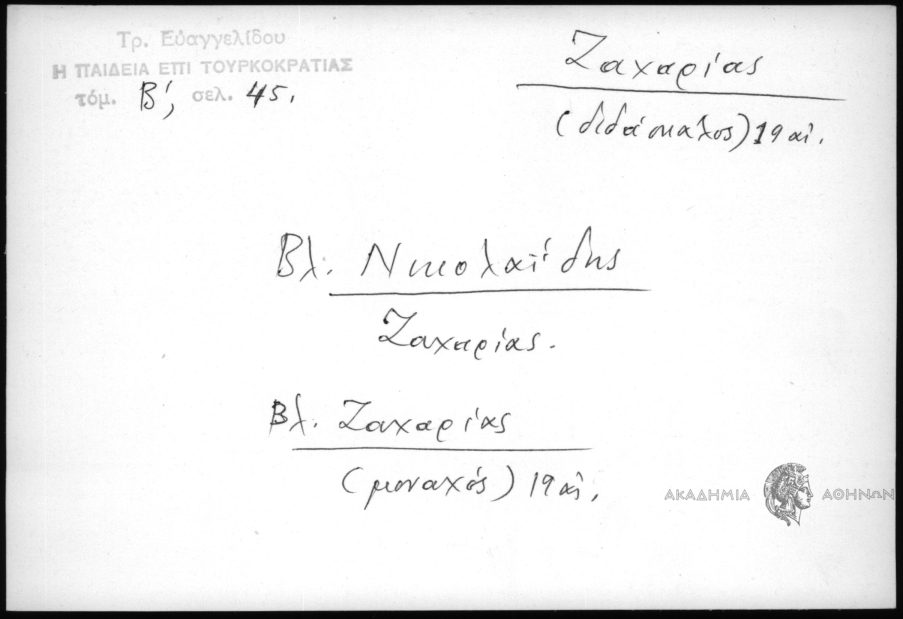 Τρ. Εὐαγγελίδου
Η ΠΑΙΔΕΙΑ ΕΠΙ ΤΟΥΡΚΟΚΡΑΤΙΑΣ
τόμ. Β', σελ. 45.
Ζαχαρίας
(διδάσκαλος) 19 αἰ.
Βλ. Νικολαΐδης
Ζαχαρίας.
Βλ. Ζαχαρίας
(μοναχός) 19 αἰ.
ΑΚΑΔΗΜΙΑ ΑΘΗΝΩΝ